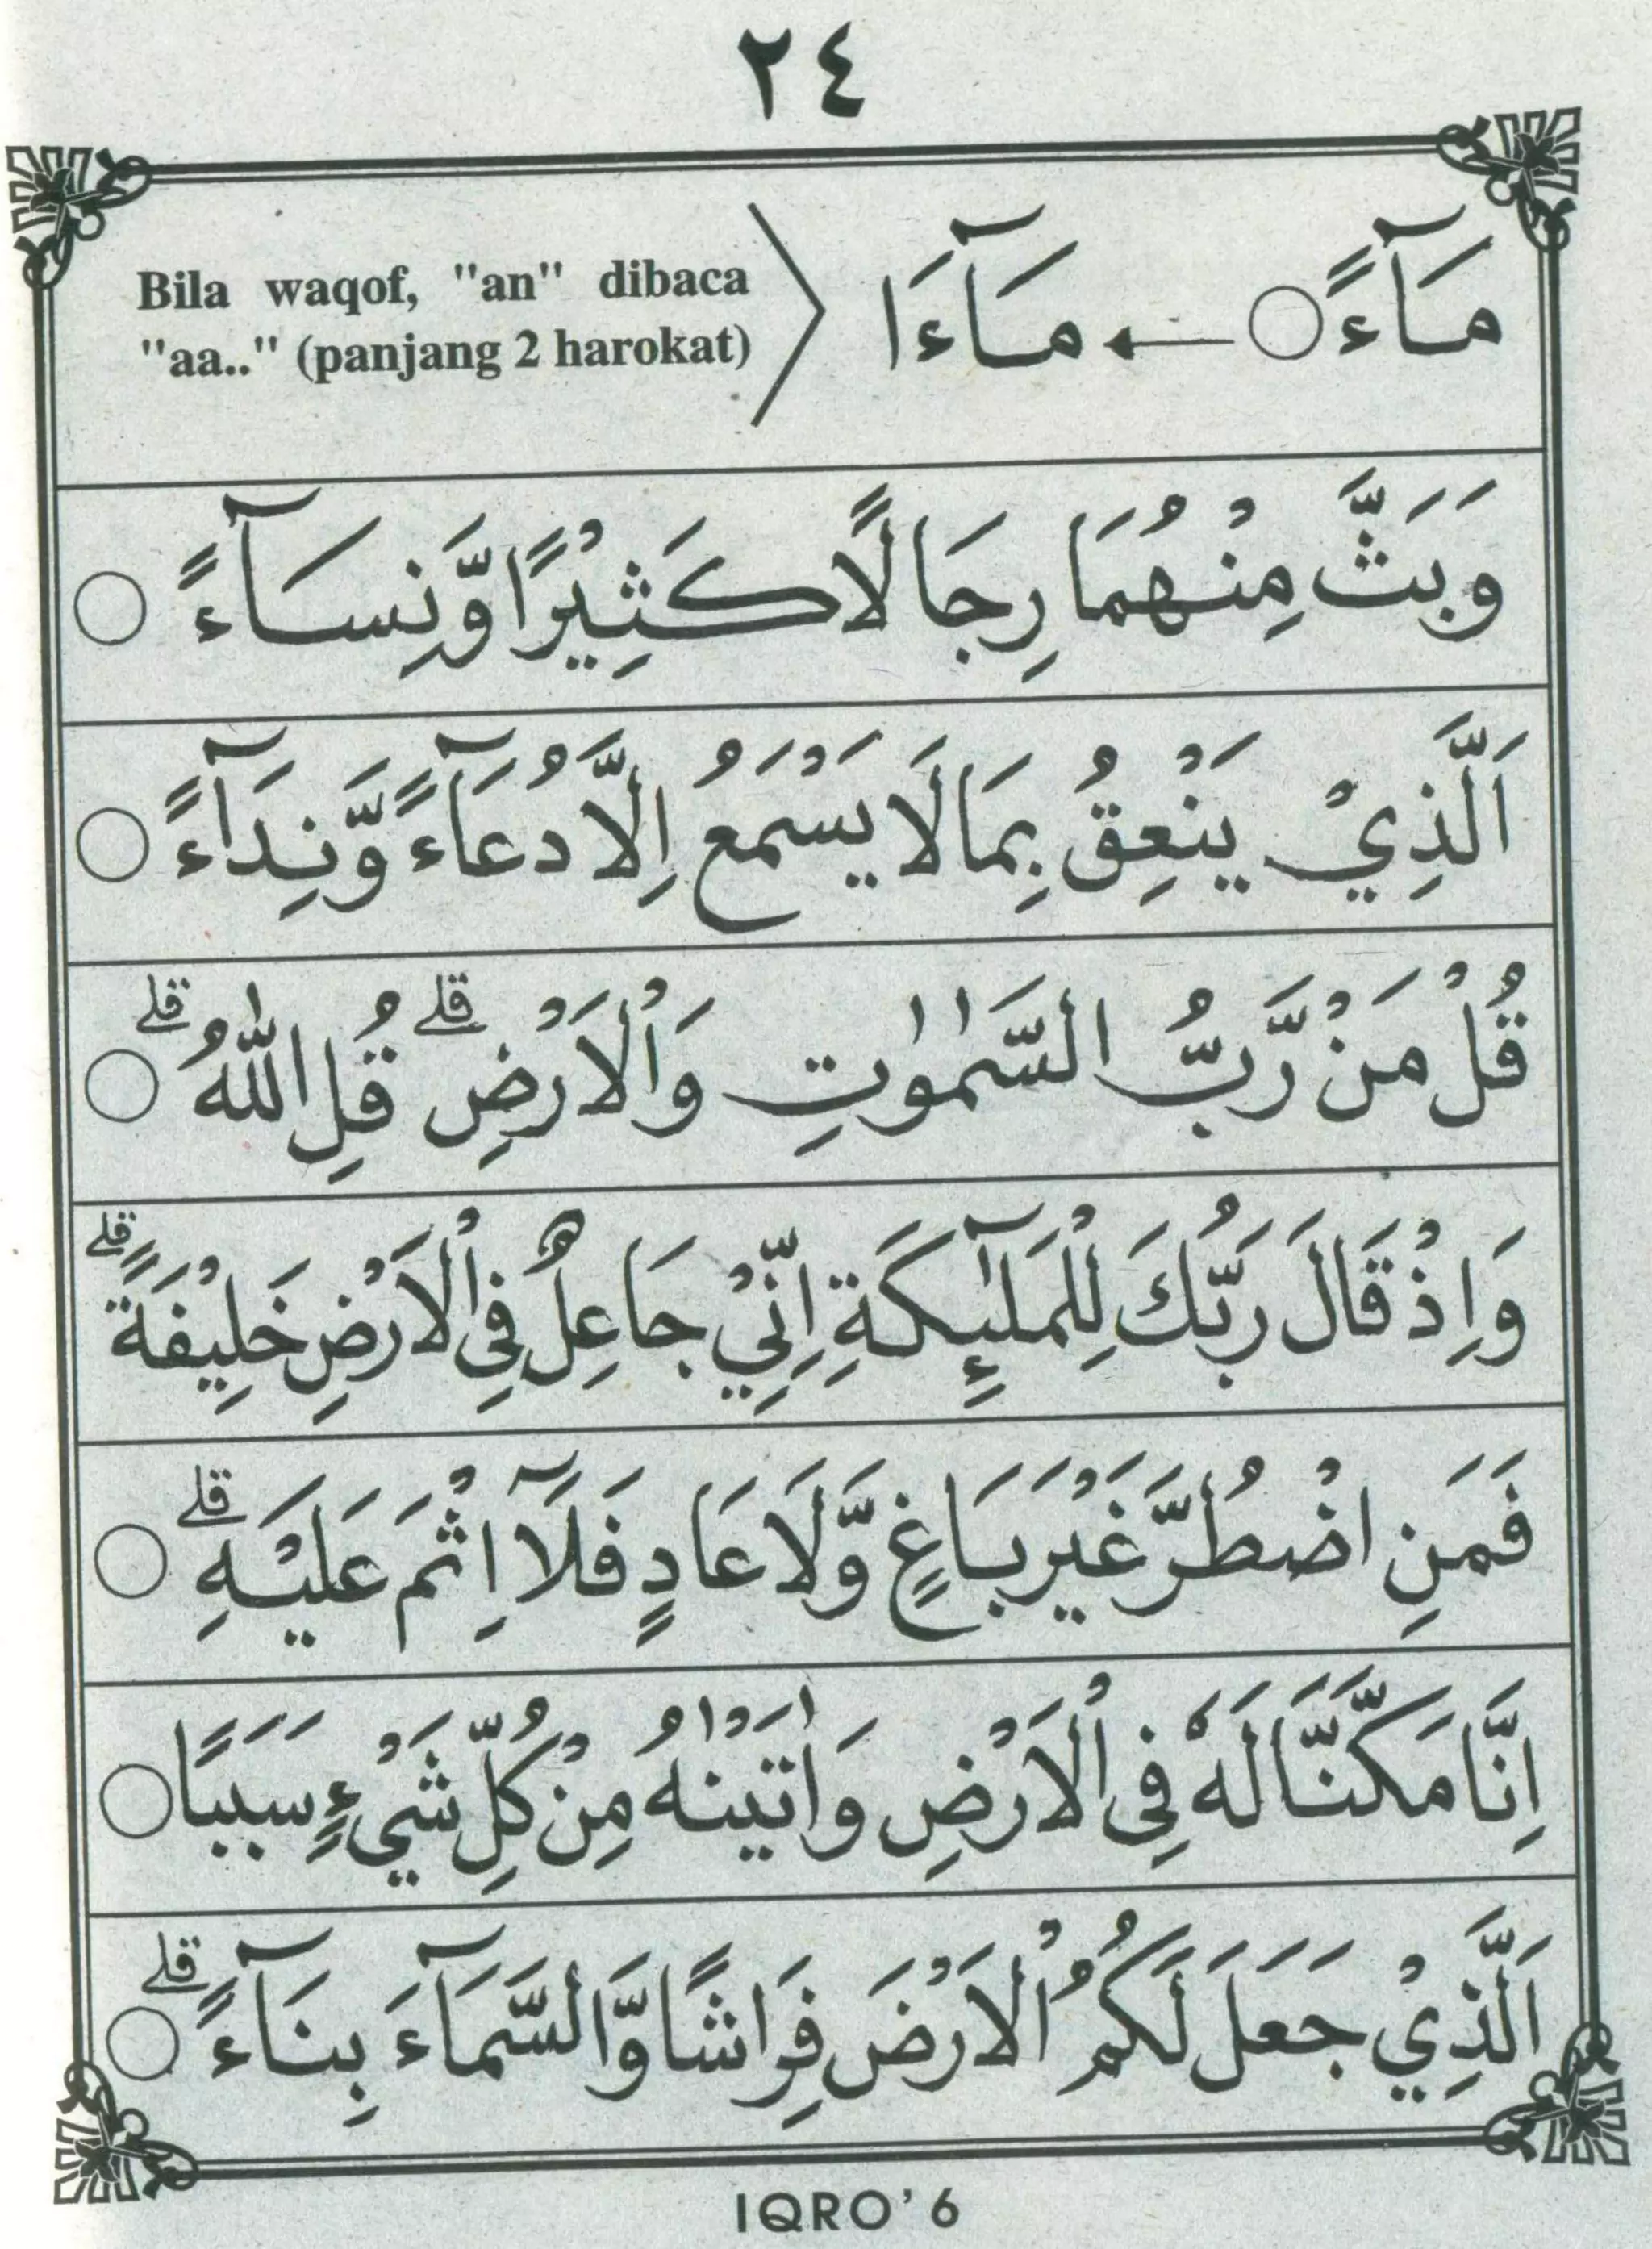 ٢٤
مَآءً ○ ← مَآءَا
Bila waqof, "an" dibaca
"aa.." (panjang 2 harokat)
وَبَثَّ مِنْهُمَا رِجَالًا كَثِيْرًا وَّنِسَآءً ○
اَلَّذِيْ يَنْعِقُ بِمَا لَا يَسْمَعُ اِلَّا دُعَآءً وَّنِدَآءً ○
قُلْ مَنْ رَّبُّ السَّمٰوٰتِ وَالْاَرْضِ ۗ قُلِ اللّٰهُ ۗ ○
وَاِذْ قَالَ رَبُّكَ لِلْمَلٰٓئِكَةِ اِنِّيْ جَاعِلٌ فِى الْاَرْضِ خَلِيْفَةً ۗ
فَمَنِ اضْطُرَّ غَيْرَ بَاغٍ وَّلَا عَادٍ فَلَآ اِثْمَ عَلَيْهِ ۗ ○
اِنَّا مَكَّنَّا لَهٗ فِى الْاَرْضِ وَاٰتَيْنٰهُ مِنْ كُلِّ شَيْءٍ سَبَبًا ○
اَلَّذِيْ جَعَلَ لَكُمُ الْاَرْضَ فِرَاشًا وَّالسَّمَآءَ بِنَآءً ۗ ○
IQRO' 6